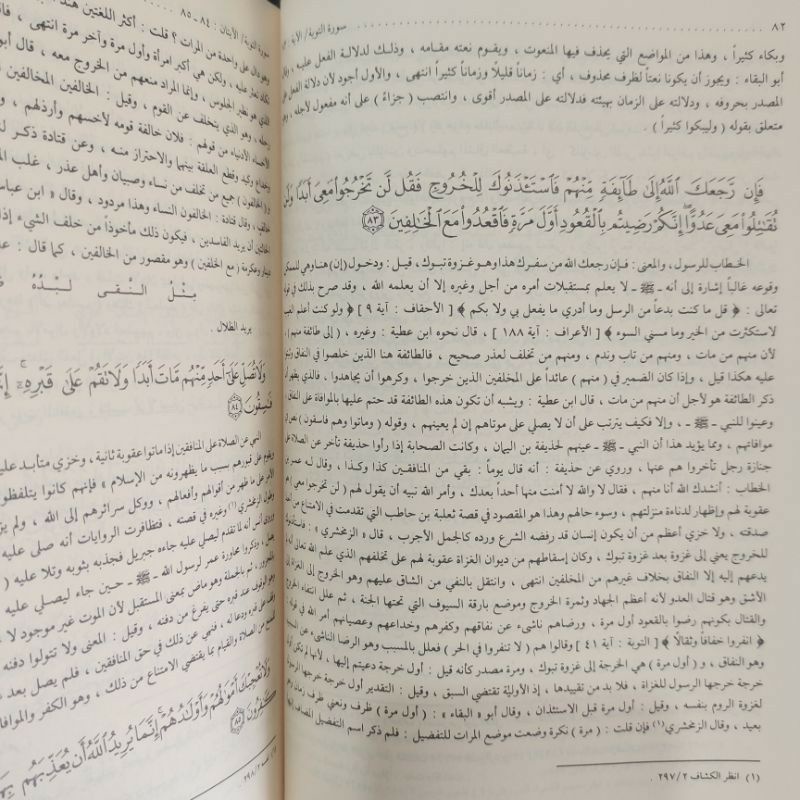 ٨٢ سورة التوبة/ الآية
وبكاء كثيراً ، وهذا من المواضع التي يحذف فيها المنعوت ، ويقوم نعته مقامه ، وذلك لدلالة الفعل عليه ، وقال
أبو البقاء : ويجوز أن يكونا نعتاً لظرف محذوف ، أي : زماناً قليلاً وزماناً كثيراً انتهى ، والأول أجود لأن دلالة الفعل على
المصدر بحروفه ، ودلالته على الزمان بهيئته فدلالته على المصدر أقوى ، وانتصب ( جزاءً ) على أنه مفعول لأجله ، وهو
متعلق بقوله ( وليبكوا كثيراً ) .
فَإِن رَّجَعَكَ ٱللَّهُ إِلَىٰ طَآئِفَةٍ مِّنْهُمْ فَٱسْتَـْٔذَنُوكَ لِلْخُرُوجِ فَقُل لَّن تَخْرُجُوا۟ مَعِىَ أَبَدًا وَلَن
تُقَـٰتِلُوا۟ مَعِىَ عَدُوًّا إِنَّكُمْ رَضِيتُم بِٱلْقُعُودِ أَوَّلَ مَرَّةٍ فَٱقْعُدُوا۟ مَعَ ٱلْخَـٰلِفِينَ ٨٣
الخطاب للرسول ، والمعنى : فإن رجعك الله من سفرك هذا وهو غزوة تبوك ، قيل : ودخول (إن) هنا وهي للممكن
وقوعه غالباً إشارة إلى أنه - ﷺ - لا يعلم بمستقبلات أمره من أجل وغيره إلا أن يعلمه الله ، وقد صرح بذلك في قوله
تعالى : ﴿ قل ما كنت بدعاً من الرسل وما أدري ما يفعل بي ولا بكم ﴾ [ الأحقاف : آية ٩ ] ﴿ ولو كنت أعلم الغيب
لاستكثرت من الخير وما مسني السوء ﴾ [ الأعراف : آية ١٨٨ ] ، قال نحوه ابن عطية : وغيره ، ( إلى طائفة منهم ) ،
لأن منهم من مات ، ومنهم من تاب وندم ، ومنهم من تخلف لعذر صحيح ، فالطائفة هنا الذين خلصوا في النفاق وثبتوا
عليه هكذا قيل ، وإذا كان الضمير في ( منهم ) عائداً على المخلفين الذين خرجوا ، وكرهوا أن يجاهدوا ، فالذي يظهر أن
ذكر الطائفة هو لأجل أن منهم من مات ، قال ابن عطية : ويشبه أن تكون هذه الطائفة قد حتم عليها بالموافاة على النفاق ،
وعينوا للنبي - ﷺ - ، وإلا فكيف يترتب على أن لا يصلي على موتاهم إن لم يعينهم ، وقوله ( وماتوا وهم فاسقون ) نص في
موافاتهم ، ومما يؤيد هذا أن النبي - ﷺ - عينهم لحذيفة بن اليمان ، وكانت الصحابة إذا رأوا حذيفة تأخر عن الصلاة على
جنازة رجل تأخروا هم عنها ، وروي عن حذيفة : أنه قال يوماً : بقي من المنافقين كذا وكذا ، وقال له عمر بن
الخطاب : أنشدك الله أنا منهم ، فقال لا والله لا أمنت منها أحداً بعدك ، وأمر الله نبيه أن يقول لهم ( لن تخرجوا معي ) هو
عقوبة لهم وإظهار لدناءة منزلتهم ، وسوء حالهم وهذا هو المقصود في قصة ثعلبة بن حاطب التي تقدمت في الامتناع من أخذ
صدقته ، ولا خزي أعظم من أن يكون إنسان قد رفضه الشرع ورده كالجمل الأجرب ، قال « الزمخشري » :
للخروج يعني إلى غزوة بعد غزوة تبوك ، وكان إسقاطهم من ديوان الغزاة عقوبة لهم على تخلفهم الذي علم الله تعالى
يدعهم إليه إلا النفاق بخلاف غيرهم من المخلفين انتهى ، وانتقل بالنفي من الشاق عليهم وهو الخروج إلى الغزاة إلى
الأشق وهو قتال العدو لأنه أعظم الجهاد وثمرة الخروج وموضع بارقة السيوف التي تحتها الجنة ، ثم علل انتفاء الخروج
والقتال بكونهم رضوا بالقعود أول مرة ، ورضاهم ناشىء عن نفاقهم وكفرهم وخداعهم وعصيانهم أمر الله في قوله :
﴿ انفروا خفافاً وثقالاً ﴾ [ التوبة : آية ٤١ ] وقالوا هم ( لا تنفروا في الحر ) فعلل بالمسبب وهو الرضا الناشىء عن السبب
وهو النفاق ، و ( أول مرة ) هي الخرجة إلى غزوة تبوك ، ومرة مصدر كأنه قيل : أول خرجة دعيتم إليها ، لأنها لم تكن أول
خرجة خرجها الرسول للغزاة ، فلا بد من تقييدها ، إذ الأولية تقتضي السبق ، وقيل : التقدير أول خرجة خرجها الرسول
لغزوة الروم بنفسه ، وقيل : أول مرة قبل الاستئذان ، وقال أبو « البقاء » : ( أول مرة ) ظرف ونعني ظرف زمان وهو
بعيد ، وقال الزمخشري(١) فإن قلت : ( مرة ) نكرة وضعت موضع المرات للتفضيل : فلم ذكر اسم التفضيل المضاف
(١) انظر الكشاف ٢٩٧/٢ .
سورة التوبة/ الآيتان : ٨٤ - ٨٥
وهو دال على واحدة من المرات ؟ قلت : أكثر اللغتين هند
تكاد تعثر عليه ، ولكن هي أكبر امرأة وأول مرة وآخر مرة انتهى ،
وإنما المراد منعهم من الخروج معه ، قال أبو
وهو الذي يتخلف عن القوم ، وقيل : الخالفين المخالفين
من قولهم : فلان خالفة قومه لأخسهم وأرذلهم ،
وخداع وكيد وقطع العلقة بينهما والاحتراز منه ، وعن قتادة ذكر
جمع من تخلف من نساء وصبيان وأهل عذر ، غلب
وقال قتادة : الخالفون النساء وهذا مردود ، وقال « ابن عباس
يريد الفاسدين ، فيكون ذلك مأخوذاً من خلف الشيء إذا
وعكرمة ( مع الخلفين ) وهو مقصور من الخالفين ، كما قال :
مِثْلُ النَّقَى لَبَّدَهُ
يريد الظلال .
وَلَا تُصَلِّ عَلَىٰٓ أَحَدٍ مِّنْهُم مَّاتَ أَبَدًا وَلَا تَقُمْ عَلَىٰ قَبْرِهِۦٓ
فَـٰسِقُونَ ٨٤
النهي عن الصلاة على المنافقين إذا ماتوا عقوبة ثانية ، وخزي متأبد
على قبورهم بسبب ما يظهرونه من الإسلام » فإنهم كانوا يتلفظون
من أقوالهم وأفعالهم ، ووكل سرائرهم إلى الله ، ولم
وغيره في قصته ، فتظافرت الروايات أنه صلى عليه
أنه لما تقدم ليصلي عليه جاءه جبريل فجذبه بثوبه وتلا عليه
وذكروا محاورة عمر لرسول الله - ﷺ - حين جاء ليصلي عليه
وهو ماض بمعنى المستقبل لأن الموت غير موجود
عند قبره حتى يفرغ من دفنه ، وقيل : المعنى ولا تتولوا دفنه
ودعا له ، فنهي عن ذلك في حق المنافقين ، فلم يصل بعد
من الصلاة والقيام بما يقتضي الامتناع من ذلك ، وهو الكفر والموافاة
وَلَا تُعْجِبْكَ أَمْوَٰلُهُمْ وَأَوْلَـٰدُهُمْ إِنَّمَا يُرِيدُ ٱللَّهُ أَن يُعَذِّبَهُم بِهَا
كَـٰفِرُونَ ٨٥
٢٩٨/٢ .